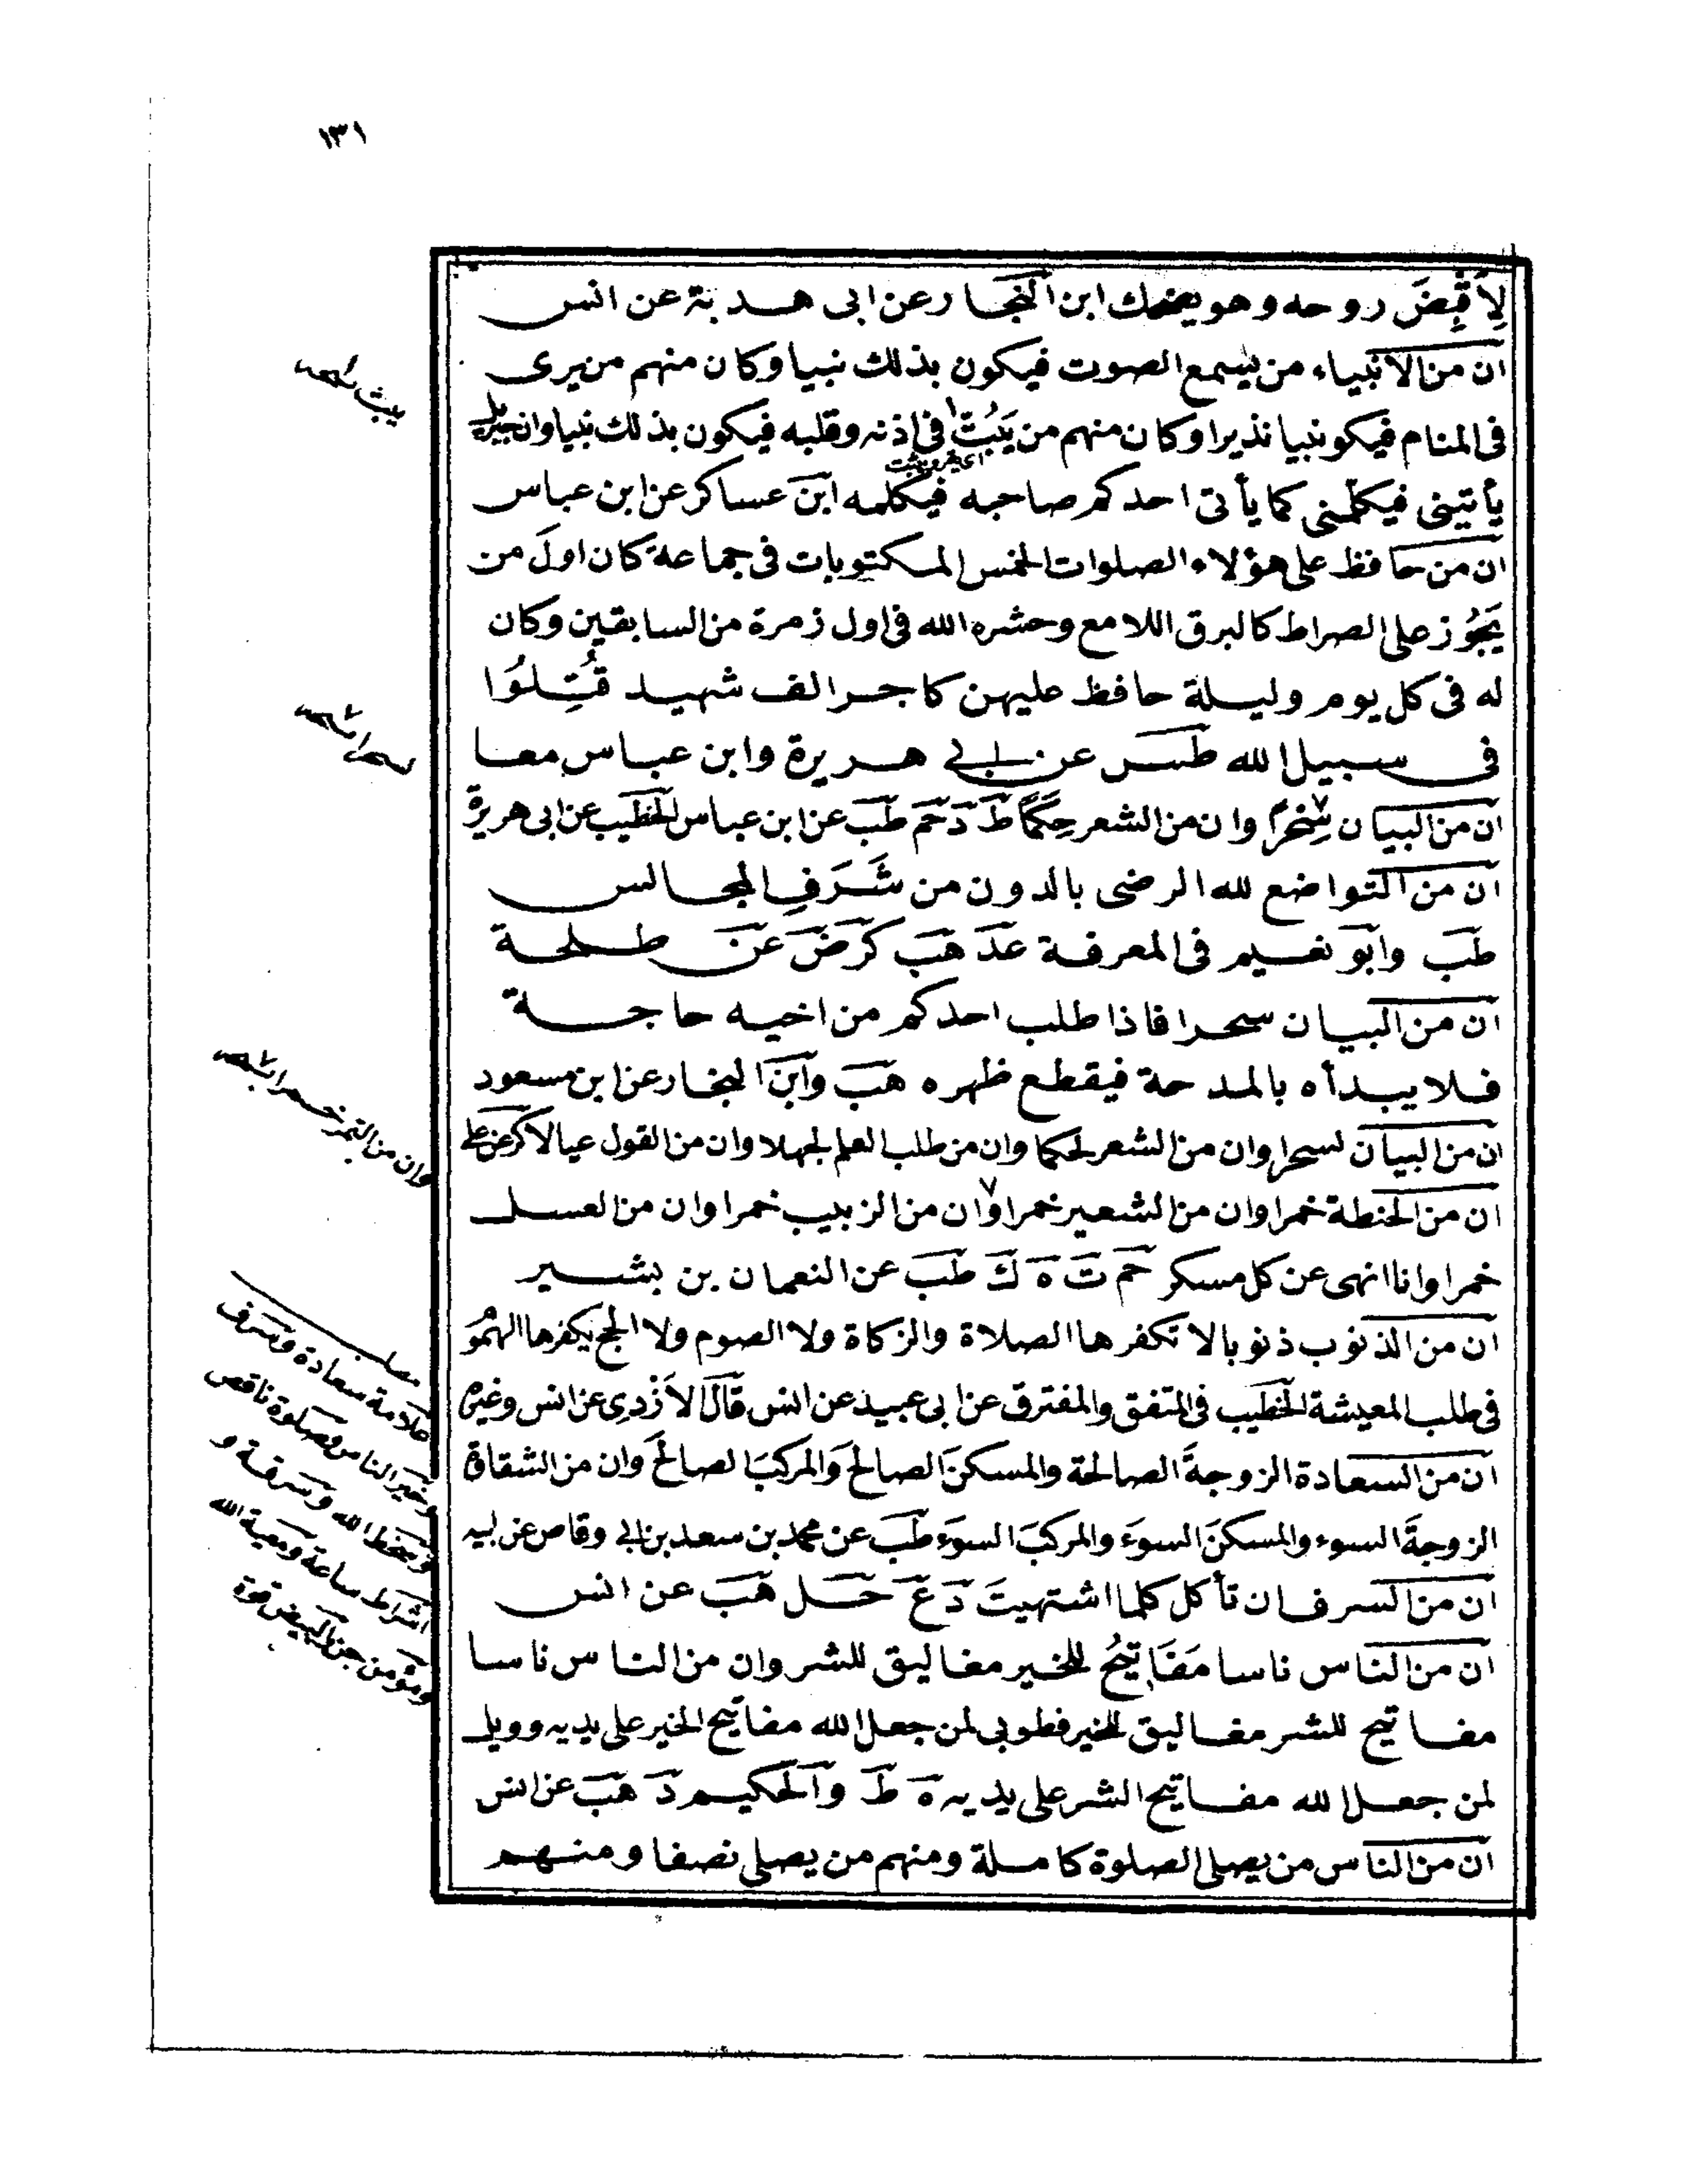 ١٣١
لِاَقْبِضَ روحه وهو يضحك ابن النجار عن ابى هدبة عن انس
ان من الانبياء من يسمع الصوت فيكون بذلك نبيا وكان منهم من يرى
فى المنام فيكو نبيا نذيرا وكان منهم من يَبُتُ فى اذنه وقلبه فيكون بذلك نبيا وان جبريل
يأتينى فيكلمنى كما يأتى احدكم صاحبه فيكلمه ابن عساكر عن ابن عباس
ان من حافظ على هؤلاء الصلوات الخمس المكتوبات فى جماعة كان اول من
يَجُوز على الصراط كالبرق اللامع وحشره الله فى اول زمرة من السابقين وكان
له فى كل يوم وليلة حافظ عليهن كاجر الف شهيد قُتِلُوا
فى سبيل الله طس عن ابى هريرة وابن عباس معا
ان من البيان سِحْرًا وان من الشعر حِكَمًا ط د حم طب عن ابن عباس الخطيب عن ابى هريرة
ان من التواضع لله الرضى بالدون من شَرَفِ المجالس
طب وابو نعيم فى المعرفة عد هب كر ض عن طلحة
ان من البيان سحرا فاذا طلب احدكم من اخيه حاجة
فلا يبدأه بالمدحة فيقطع ظهره هب وابن النجار عن ابن مسعود
ان من البيان لسحرا وان من الشعر لحكما وان من طلب العلم لجهلا وان من القول عيالا كر عن على
ان من الحنطة خمرا وان من الشعير خمرا وان من الزبيب خمرا وان من العسل
خمرا وانا انهى عن كل مسكر حم ت ه ك طب عن النعمان بن بشير
ان من الذنوب ذنوبا لا تكفرها الصلاة والزكاة ولا الصوم ولا الحج يكفرها الهُمُو
فى طلب المعيشة الخطيب فى المتفق والمفترق عن ابى عبيد عن انس قال الازدى عن انس وغيره
ان من السعادة الزوجةَ الصالحة والمسكنَ الصالحَ والمركبَ الصالحَ وان من الشقاق
الزوجةَ السوء والمسكنَ السوءَ والمركبَ السوءَ طب عن محمد بن سعد بن ابى وقاص عن ابيه
ان من السرف ان تأكل كلما اشتهيتَ د ع حل هب عن انس
ان من الناس ناسا مَفَاتِيحُ للخير مغاليق للشر وان من الناس ناسا
مفاتيح للشر مغاليق للخير فطوبى لمن جعل الله مفاتيح الخير على يديه وويل
لمن جعل الله مفاتيح الشر على يديه ه ط والحكيم د هب عن انس
ان من الناس من يصلى الصلوة كاملة ومنهم من يصلى نصفا ومنهم
وان من التمر خمرا
مطلب
علامة سعادة وسرف
وخير الناس وصلوة ناقص
وسخط الله وسرقة و
اشراط ساعة ومعية الله